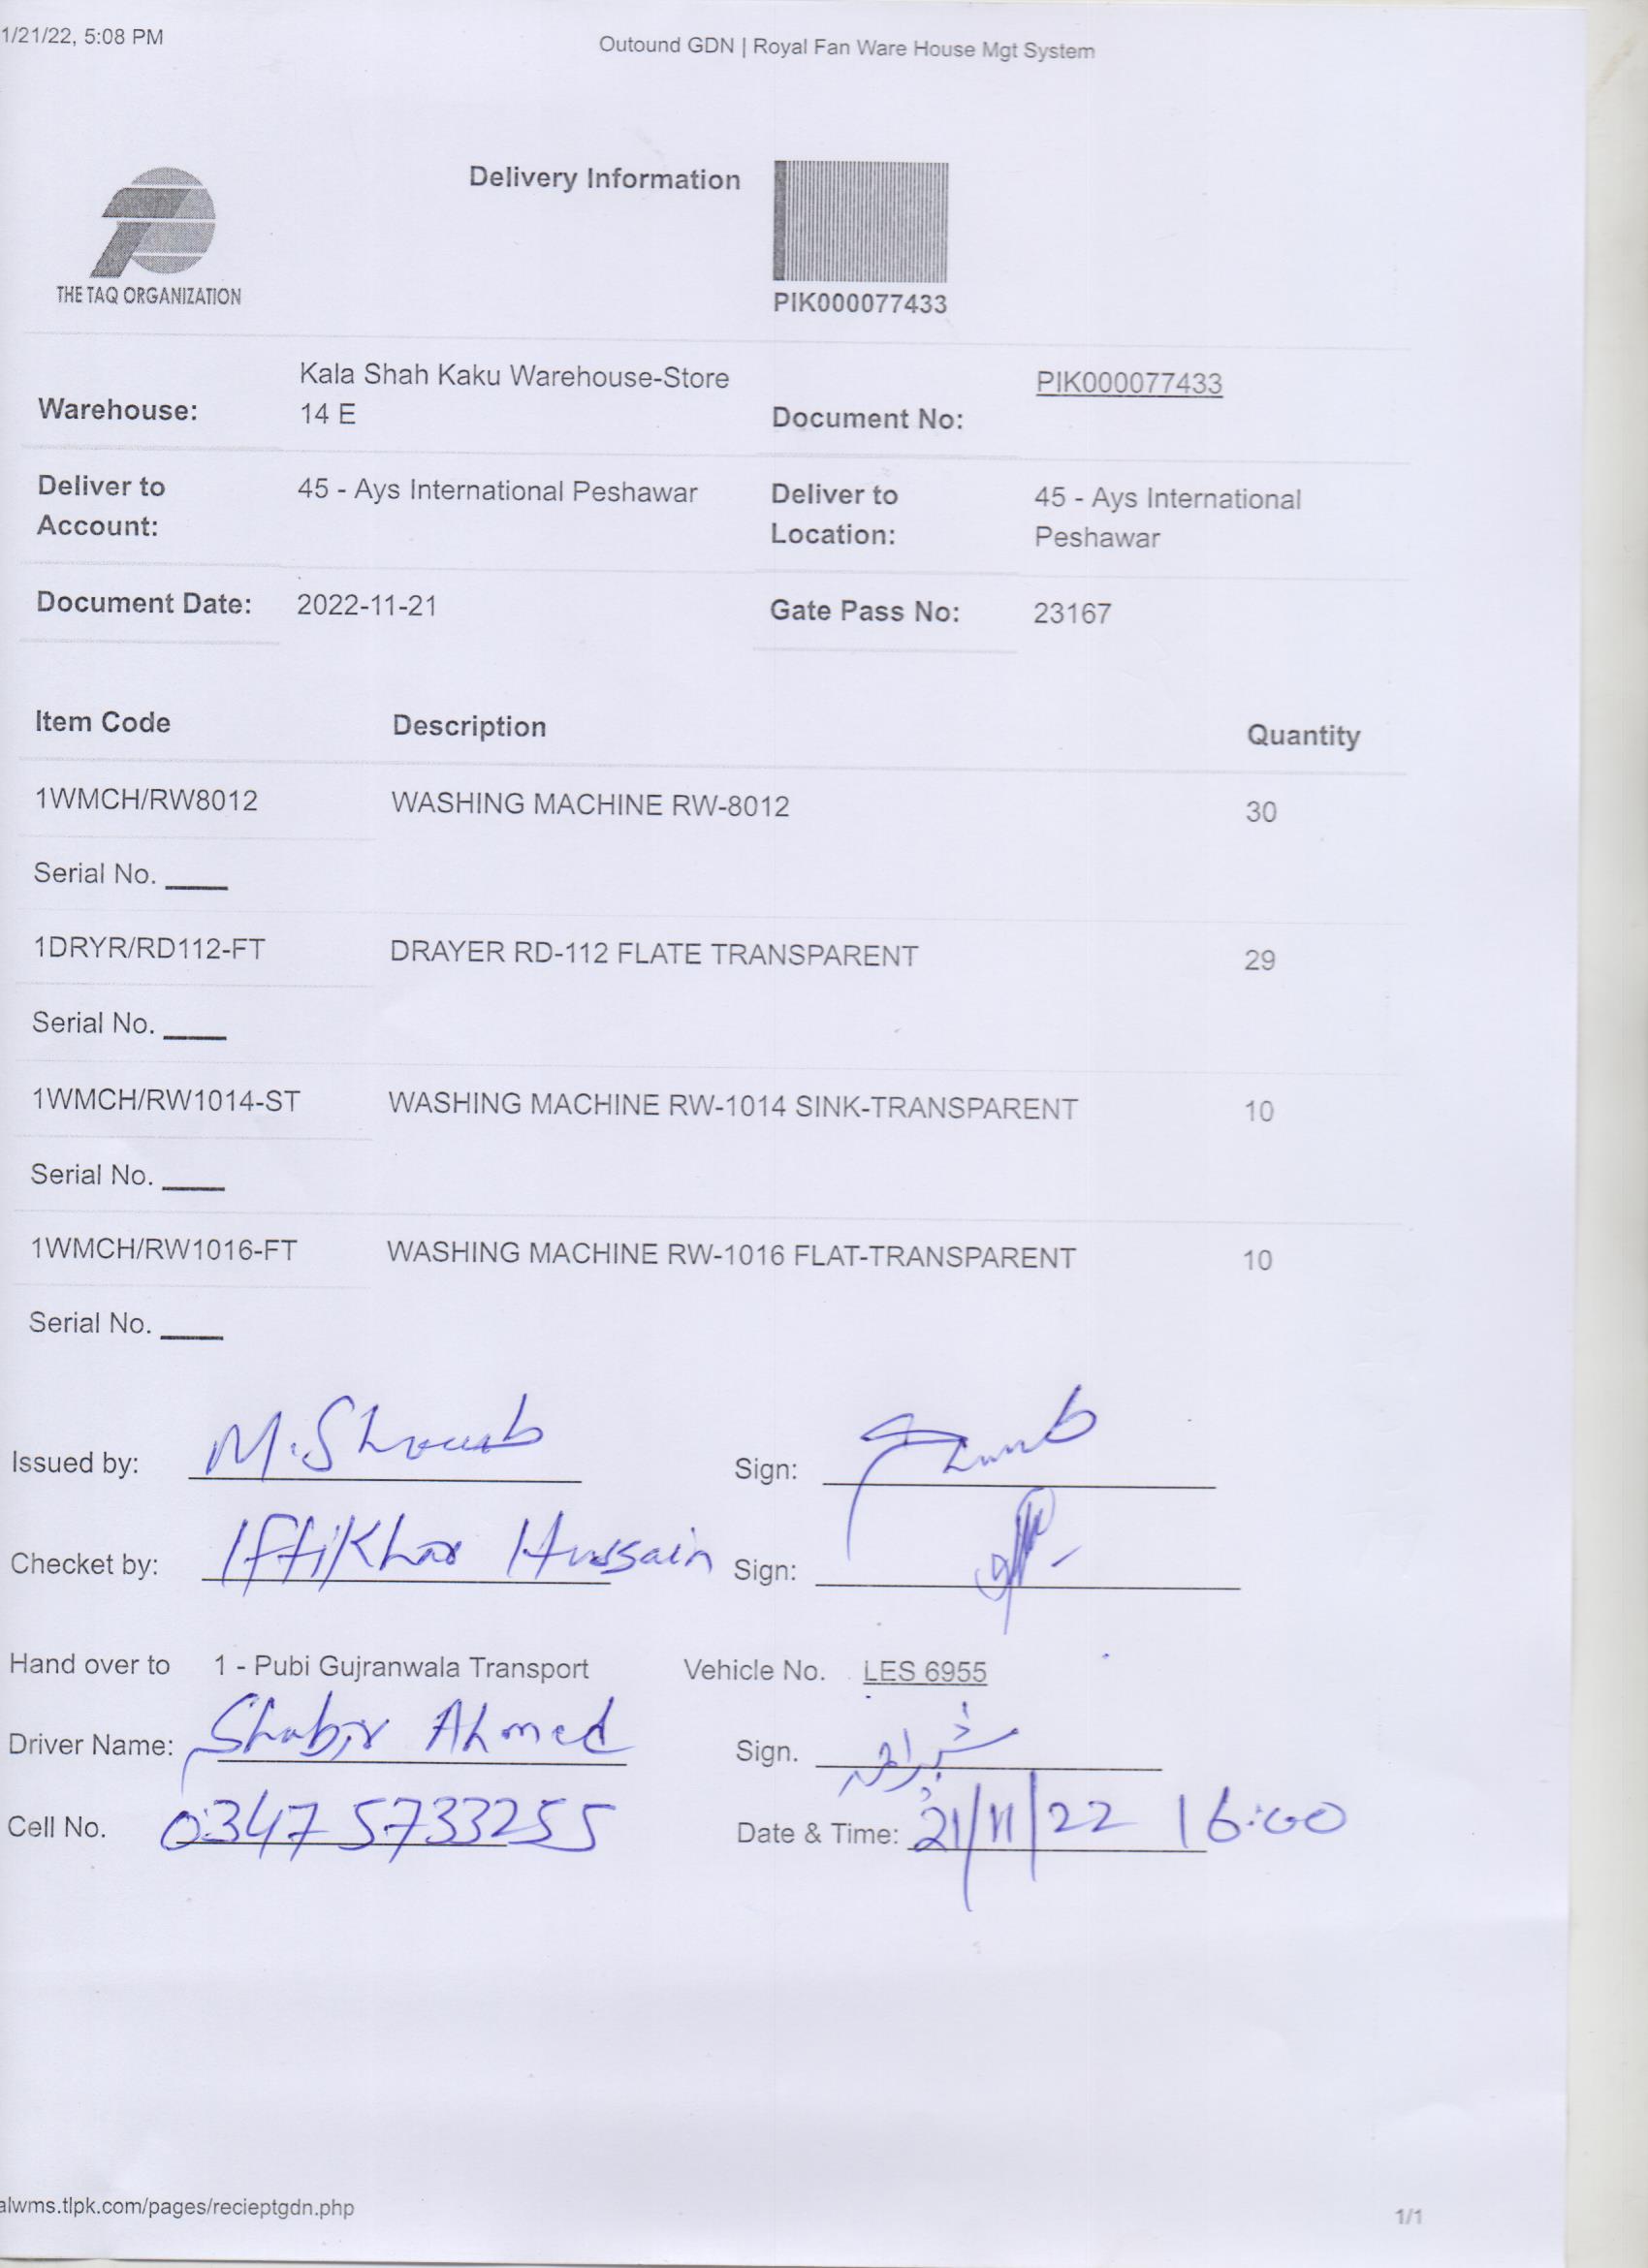 1/21/22, 5:08 PM
Outound GDN | Royal Fan Ware House Mgt System
THE TAQ ORGANIZATION
Delivery Information
PIK000077433
Warehouse: Kala Shah Kaku Warehouse-Store 14 E
Document No: PIK000077433
Deliver to Account: 45 - Ays International Peshawar
Deliver to Location: 45 - Ays International Peshawar
Document Date: 2022-11-21
Gate Pass No: 23167
Item Code Description Quantity
1WMCH/RW8012 WASHING MACHINE RW-8012 30
Serial No. ____
1DRYR/RD112-FT DRAYER RD-112 FLATE TRANSPARENT 29
Serial No. ____
1WMCH/RW1014-ST WASHING MACHINE RW-1014 SINK-TRANSPARENT 10
Serial No. ____
1WMCH/RW1016-FT WASHING MACHINE RW-1016 FLAT-TRANSPARENT 10
Serial No. ____
Issued by: M. Sign:
Checket by: Iftikhar Hussain Sign:
Hand over to 1 - Pubi Gujranwala Transport Vehicle No. LES 6955
Driver Name: Shabir Ahmed Sign.
Cell No. 0347 5733255 Date & Time: 21/11/22 16:00
alwms.tlpk.com/pages/recieptgdn.php
1/1